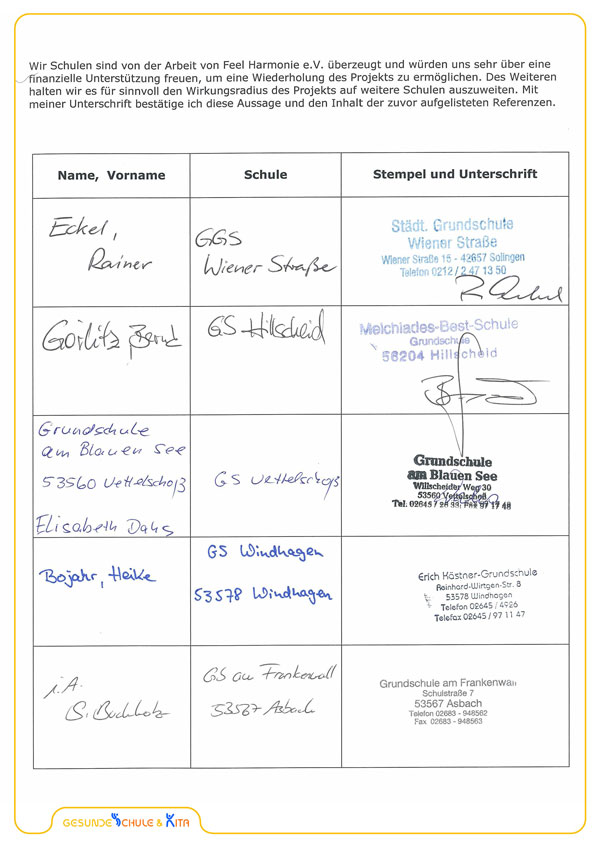 Wir Schulen sind von der Arbeit von Feel Harmonie e.V. überzeugt und würden uns sehr über eine
finanzielle Unterstützung freuen, um eine Wiederholung des Projekts zu ermöglichen. Des Weiteren
halten wir es für sinnvoll den Wirkungsradius des Projekts auf weitere Schulen auszuweiten. Mit
meiner Unterschrift bestätige ich diese Aussage und den Inhalt der zuvor aufgelisteten Referenzen.
Name, Vorname
Schule
Stempel und Unterschrift
Eckel,
Rainer
GGS
Wiener Straße
Städt. Grundschule
Wiener Straße
Wiener Straße 15 - 42657 Solingen
Telefon 0212 / 2 47 13 50
Görlitz Bernd
GS Hillscheid
Melchiades-Best-Schule
Grundschule
56204 Hillscheid
Grundschule
am Blauen See
53560 Vettelschoß
Elisabeth
GS Vettelschoß
Grundschule
am Blauen See
Willscheider Weg 30
53560 Vettelschoß
Tel. 02645 / Fax 97 17 48
Bojahr, Heike
GS Windhagen
53578 Windhagen
Erich Kästner-Grundschule
Reinhard-Wirtgen-Str. 8
53578 Windhagen
Telefon 02645 / 4926
Telefax 02645 / 97 11 47
i.A.
S. Buchholz
GS am Frankenwall
53567 Asbach
Grundschule am Frankenwall
Schulstraße 7
53567 Asbach
Telefon 02683 - 948562
Fax 02683 - 948563
GESUNDE SCHULE & KITA